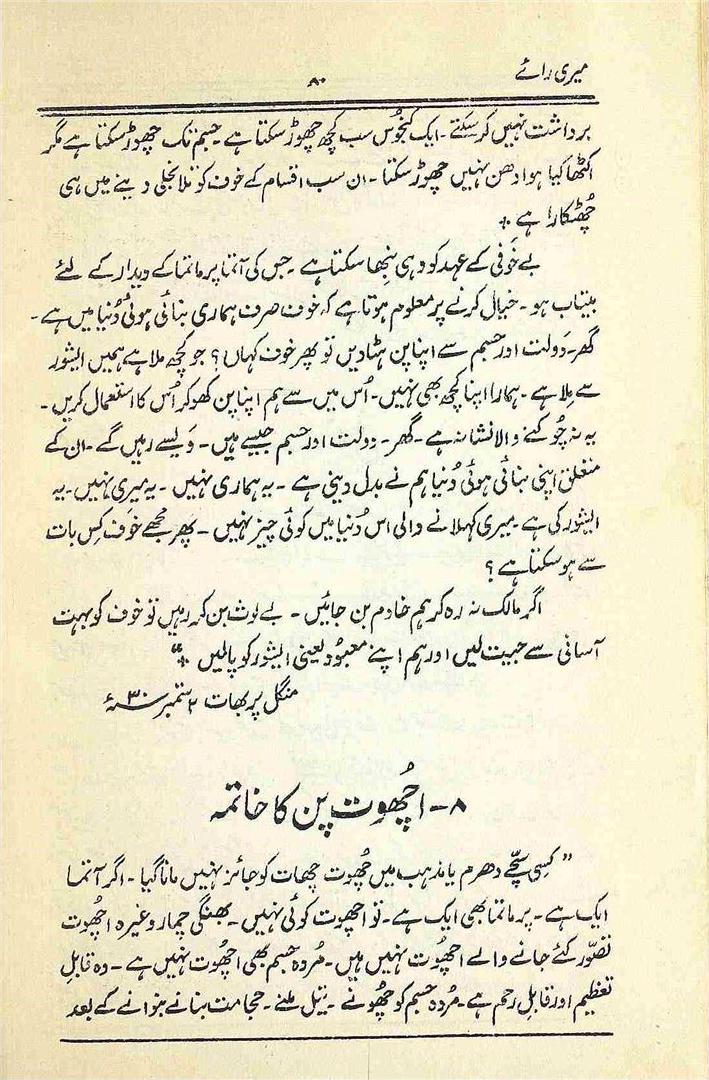 میری رائے
۸۰
برداشت نہیں کرسکتے۔ ایک کنجُوس سب کچھ چھوڑ سکتا ہے۔ جسم تک چھوڑ سکتا ہے مگر
اکٹھا کیا ہوا دھن نہیں چھوڑ سکتا۔ ان سب اقسام کے خوف کو تلانجلی دینے میں ہی
چُھٹکارا ہے ۔
بے خوفی کے عہد کو وہی نبھا سکتا ہے۔ جس کی آتما پرماتما کے دیدار کے لئے
بیتاب ہو۔ خیال کرنے پر معلوم ہوتا ہے کہ خوف صرف ہماری بنائی ہوئی دُنیا میں ہے۔
گھر۔ دَولت اور جسم سے اپنا پن ہٹا دیں تو پھر خوف کہاں؟ جو کچھ ملا ہے ہمیں ایشور
سے مِلا ہے۔ ہمارا اپنا کچھ بھی نہیں۔ اُس میں سے ہم اپنا پن کھو کر اُس کا استعمال کریں۔
یہ نہ چُوکنے والا نشانہ ہے۔ گھر۔ دولت اور جسم جیسے ہیں۔ وَیسے رہیں گے۔ ان کے
متعلق اپنی بنائی ہوئی دُنیا ہم نے بدل دینی ہے۔ یہ ہماری نہیں۔ یہ میری نہیں۔ یہ
ایشور کی ہے۔ میری کہلانے والی اس دُنیا میں کوئی چیز نہیں۔ پھر مجھے خوف کِس بات
سے ہو سکتا ہے؟
اگر مالک نہ رہ کر ہم خادم بن جائیں۔ بے لوث بن کر رہیں تو خوف کو بہت
آسانی سے جیت لیں اور ہم اپنے معبُود یعنی ایشور کو پالیں ۔“
منگل پربھات ۲ ستمبر ۳۰ء
۸۔ اچُھوت پن کا خاتمہ
” کسی سچّے دھرم یا مذہب میں چُھوت چھات کو جائز نہیں مانا گیا۔ اگر آتما
ایک ہے۔ پرماتما بھی ایک ہے۔ تو اچھوت کوئی نہیں۔ بھنگی چمار وغیرہ اچُھوت
تصوّر کئے جانے والے اچُھوت نہیں ہیں۔ مُردہ جسم بھی اچُھوت نہیں ہے۔ وہ قابلِ
تعظیم اور قابلِ رحم ہے۔ مُردہ جسم کو چُھونے۔ تیل ملنے۔ حجامت بنانے بنوانے کے بعد